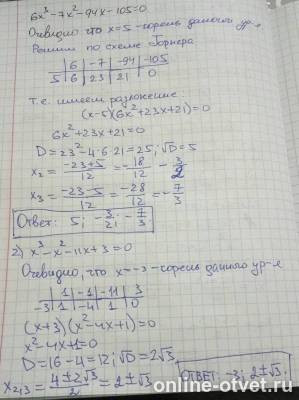 6x³-7x²-94x-105=0
Очевидно что x=5 - корень данного ур-я
Решим по схеме Горнера
6 | -7 | -94 | -105
5 | 6 | 23 | 21 | 0
т.е. имеем разложение:
(x-5)(6x²+23x+21)=0
6x²+23x+21=0
D=23²-4·6·21=25; √D=5
x₂ = (-23+5)/12 = -18/12 - 3/2
x₃ = (-23-5)/12 = -28/12 = -7/3
Ответ: 5; -3/2; -7/3
2) x³-x²-11x+3=0
Очевидно, что x=-3 - корень данного ур-я
1 | -1 | -11 | 3
-3 | 1 | -4 | 1 | 0
(x+3)(x²-4x+1)=0
x²-4x+1=0
D=16-4=12; √D=2√3
x₂,₃ = (4±2√3)/2 = 2±√3
Ответ: -3; 2±√3.
online-otvet.ru